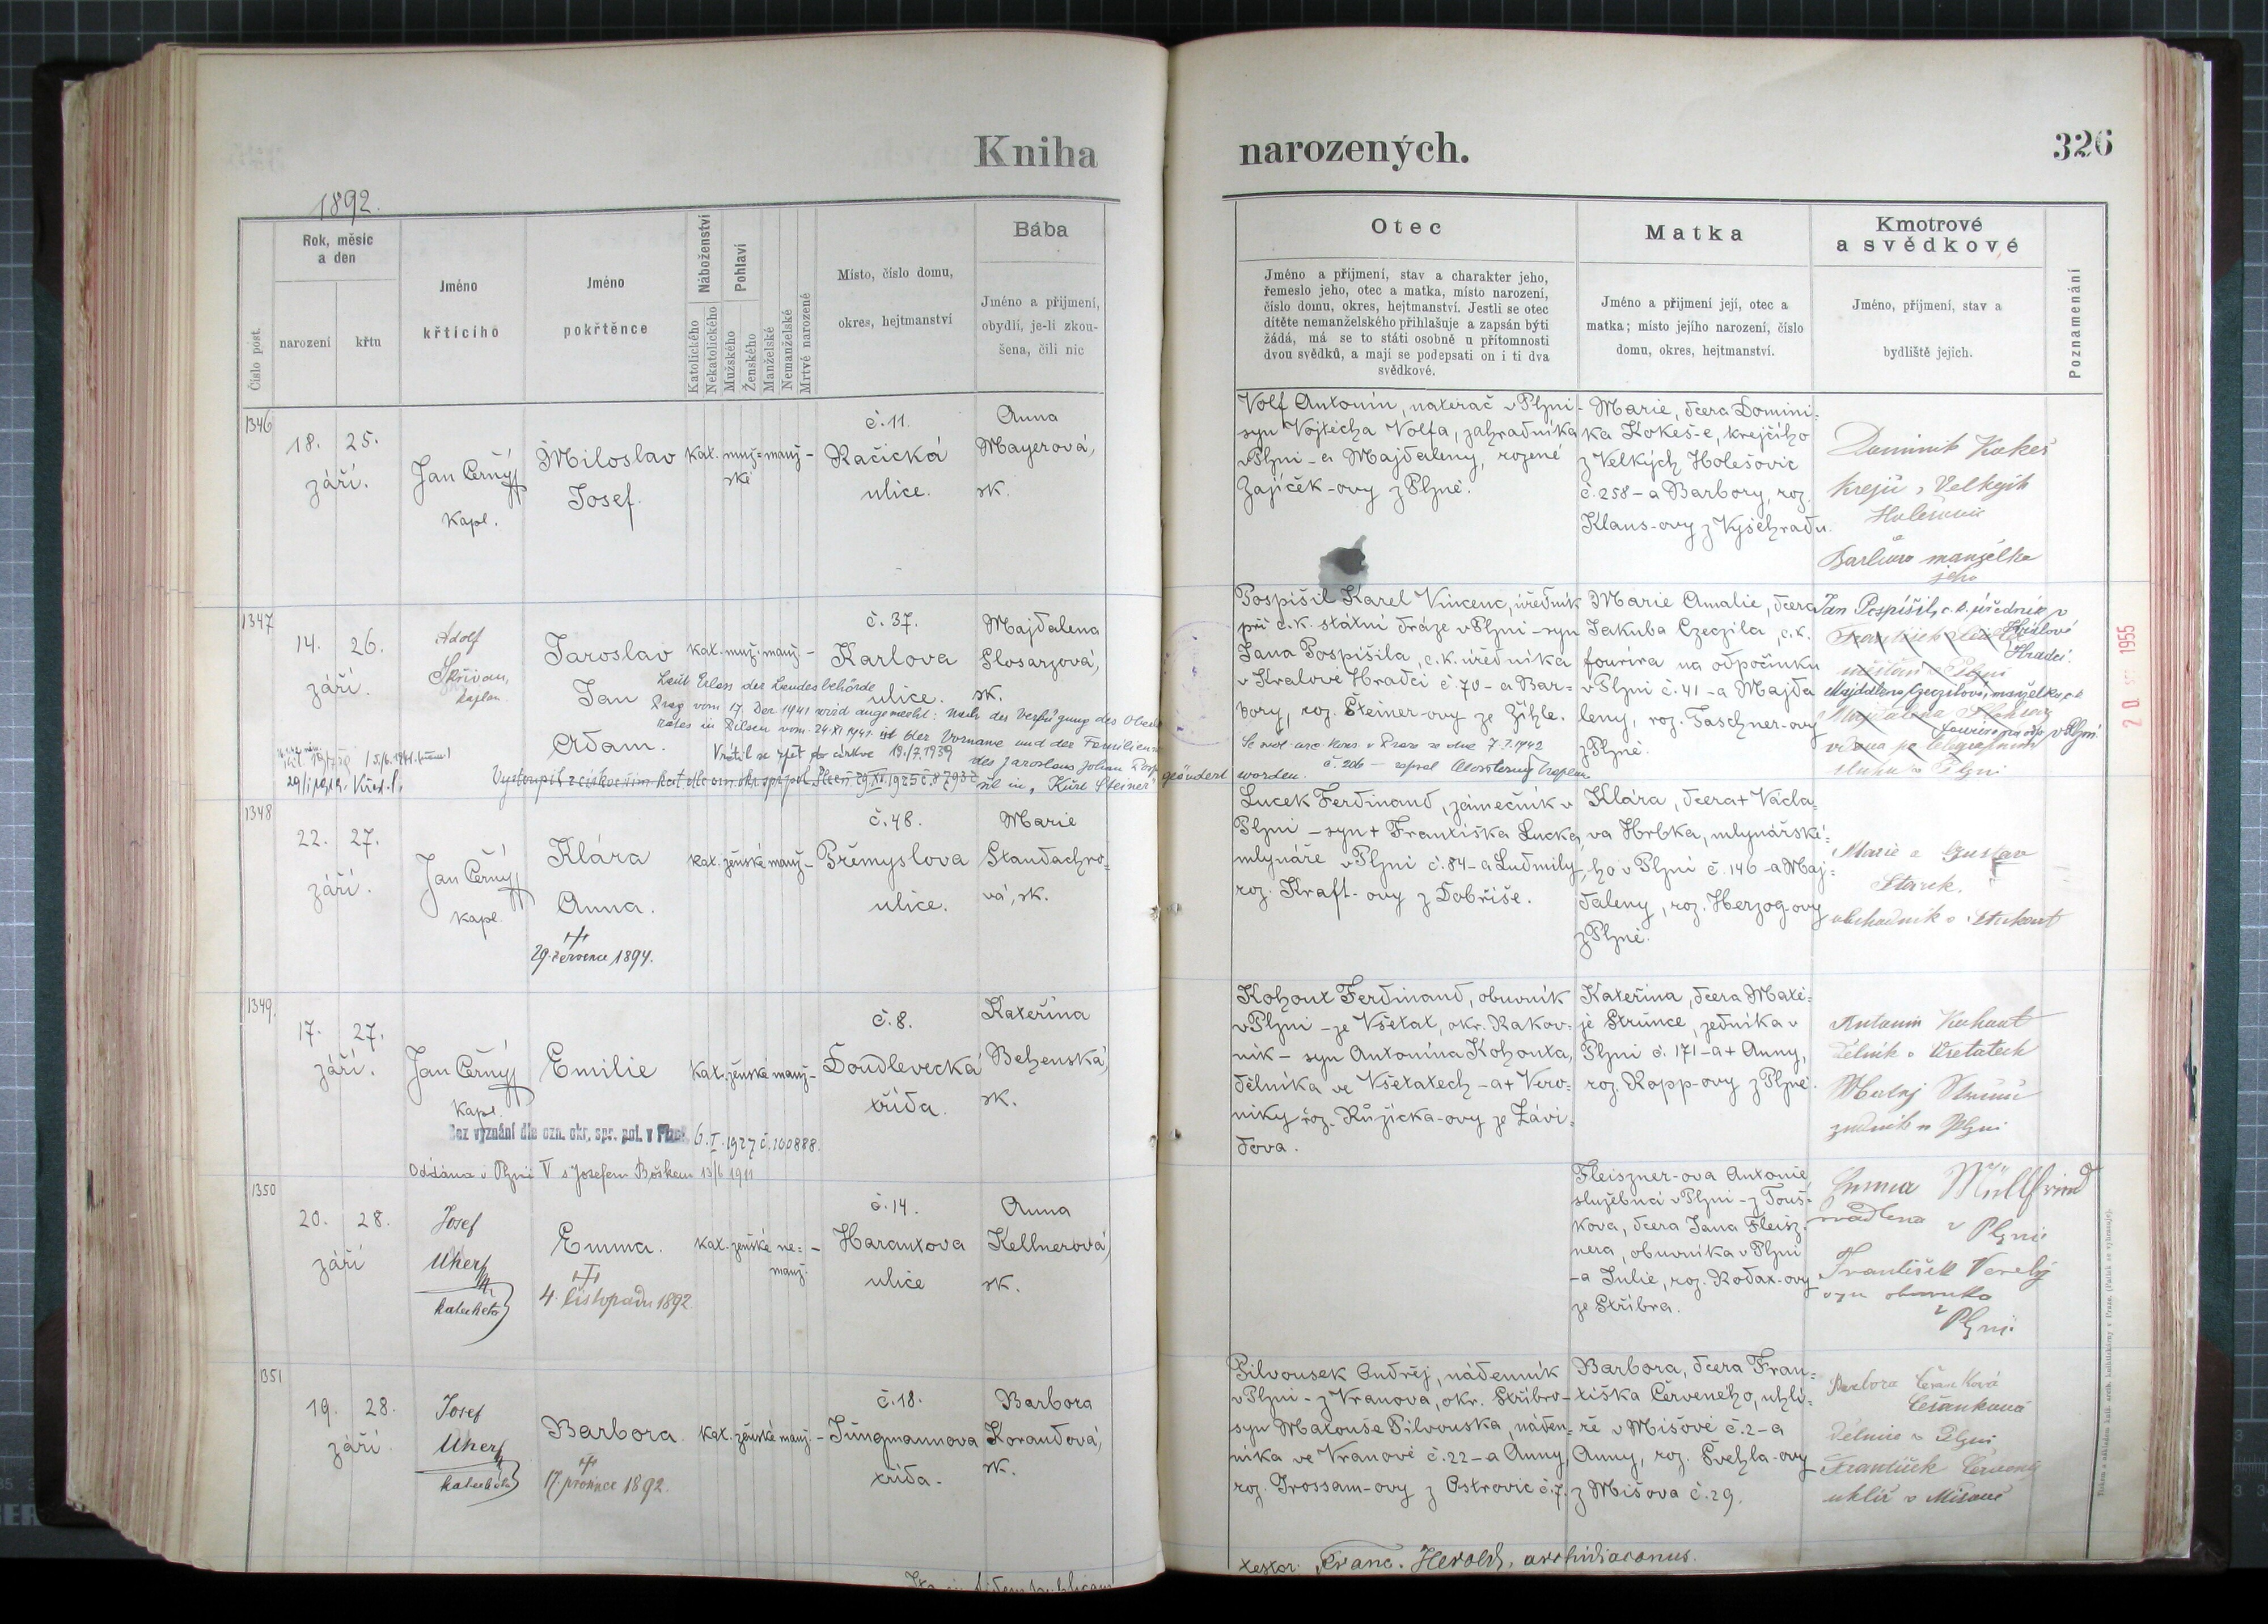 Kniha
narozených.
326
1892.
Číslo post.
Rok, měsíc
a den
narození
křtu
Jméno
křtícího
Jméno
pokřtěnce
Náboženství
Katolického
Nekatolického
Pohlaví
Mužského
Ženského
Manželské
Nemanželské
Mrtvě narozené
Místo, číslo domu,
okres, hejtmanství
Bába
Jméno a přijmení,
obydlí, je-li zkou-
šena, čili nic
Otec
Jméno a příjmení, stav a charakter jeho,
řemeslo jeho, otec a matka, místo narození,
číslo domu, okres, hejtmanství. Jestli se otec
dítěte nemanželského přihlašuje a zapsán býti
žádá, má se to státi osobně u přítomnosti
dvou svědků, a mají se podepsati on i ti dva
svědkové.
Matka
Jméno a přijmení její, otec a
matka; místo jejího narození, číslo
domu, okres, hejtmanství.
Kmotrové
a svědkové
Jméno, příjmení, stav a
bydliště jejich.
Poznamenání
1346
18. 25.
září.
Jan Černý
kapl.
Miloslav
Josef.
kat. muž- manž-
ské
č. 11.
Račická
ulice.
Anna
Mayerová,
zk.
Volf Antonín, natěrač v Plzni-
syn Vojtěcha Volfa, zahradníka
v Plzni - a Majdaleny, rozené
Zajíček-ovy z Plzně.
Marie, dcera Domini-
ka Kokeš-e, krejčího
z Velkých Holešovic
č. 258 - a Barbory, roz.
Klaus-ovy z Vyšehradu.
Dominik Kokeš
krejčí z Velkých
Holešovic
a
Barbora manželka
jeho
1347
14. 26.
září.
Adolf
Skřivan,
kaplan
Jaroslav
Jan
Adam.
kat. muž. manž-
č. 37.
Karlova
ulice.
Majdalena
Slosarzová,
zk.
Laut Erlass der Landesbehörde
Prag vom 17. Dez 1941 wird angemerkt: Nach der Verfügung des Ober
rates in Pilsen vom 24.XI 1941 ist der Vorname und der Familien
des Jaroslaus Johan Posp
šil in „Kurt Steiner" geändert worden.
Vrátil se zpět do církve 19./7.1939
Vystoupil z církve řím. kat. dle ozn. okr. spr. pol. Plzeň 29/XII 1925 č. 87932
Pospíšil Karel Vincenc, úředník
při c.k. státní dráze v Plzni - syn
Jana Pospíšila, c.k. úředníka
v Králové Hradci č. 70 - a Bar-
bory, roz. Šteiner-ovy ze Žihle.
Marie Amalie, dcera
Jakuba Czeczila, c.k.
fourira na odpočinku
v Plzni č. 41 - a Majda
leny, roz. Taschner-ovy
z Plzně.
Jan Pospíšil, c.k. úředník v
Králové
Hradci.
Majdalena Czeczilová, manželka c.k.
v Plzni
20. 1955
1348
22. 27.
září.
Jan Černý
kapl.
Klára
Anna.
29. července 1894.
kat. ženské manž-
č. 48.
Přemyslova
ulice.
Marie
Standachro-
vá, zk.
Lucek Ferdinand, zámečník v
Plzni - syn + Františka Lucka,
mlynáře v Plzni č. 84 - a Ludmily,
roz. Kraft-ovy z Dobříše.
Klára, dcera + Václa-
va Hrbka, mlynářské-
ho v Plzni č. 146 - a Maj-
daleny, roz. Herzog-ovy
z Plzně.
Marie a Gustav
Starek.
obchodník a Student
1349.
17. 27.
září.
Jan Černý
kapl.
Emilie
kat. ženské manž-
č. 8.
Doudlevecká
třída.
Kateřina
Behenská,
zk.
Bez vyznání dle ozn. okr. spr. pol. v Plzni 6.I.1927 č. 100888.
Oddána v Plzni V s Josefem Boškem 13/6 1911
Kohout Ferdinand, obuvník
v Plzni - ze Všetat, okr. Rakov-
ník - syn Antonína Kohouta,
dělníka ve Všetatech - a + Vero-
niky roz. Růžička-ovy ze Závi-
dova.
Kateřina, dcera Matě-
je Strunce, zedníka v
Plzni č. 171 - a + Anny,
roz. Kopp-ovy z Plzně.
Antonín Kohout
dělník v Všetatech
Matěj
zedník v Plzni
1350
20. 28.
září
Josef
Uherf
katecheta
Emma.
4. listopadu 1892.
kat. ženské ne- -
manž.
č. 14.
Harantova
ulice
Anna
Kellnerová,
zk.
Fleiszner-ova Antonie
služebná v Plzni - z Touš-
kova, dcera Jana Fleisz-
nera, obuvníka v Plzni
- a Julie, roz. Kodax-ovy
ze Stříbra.
Emma
švadlena v Plzni
František Veselý
syn obuvníka
v
Plzni.
1351
19. 28.
září.
Josef
Uherf
katecheta
Barbora
17. prosince 1892.
kat. ženské manž-
č. 18.
Jungmannova
třída.
Barbora
Korandová,
zk.
Pilvousek Ondřej, nádenník
v Plzni - z Vranova, okr. Stříbro-
syn Matouše Pilvouska, náden-
níka ve Vranově č. 22 - a Anny,
roz. Grossam-ovy z Ostrovic č. 7.
Barbora, dcera Fran-
tiška Červeného, uhlí-
ře v Mišově č. 2 - a
Anny, roz. Švehla-ovy
z Mišova č. 29.
Barbora
dělnice v Plzni
František Červený
uhlíř v Mišově
testor. Franc. Herold, archidiaconus.